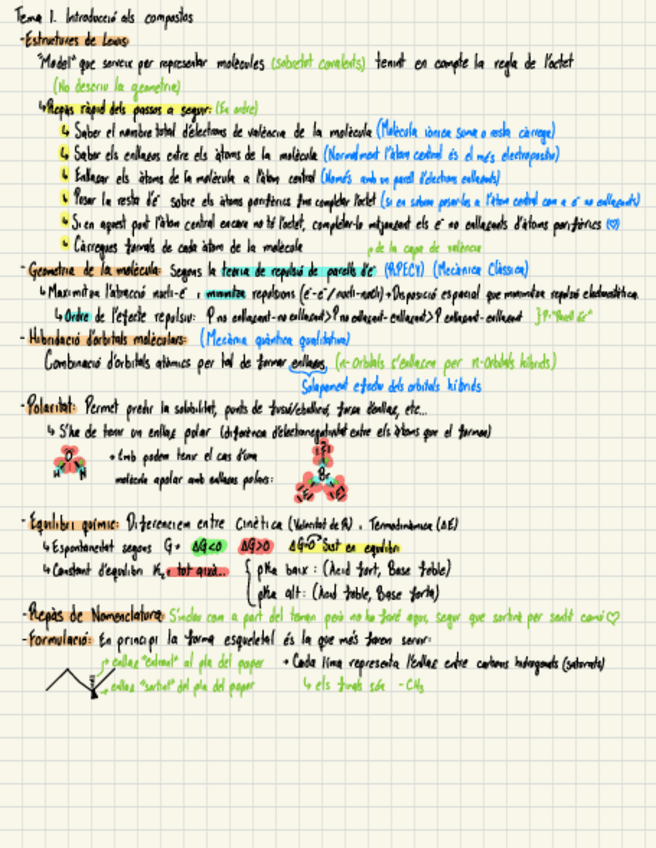 Tema 1. Introducció als compostos
- Estructures de Lewis
"Model" que serveix per representar molècules (sobretot covalents) tenint en compte la regla de l'octet
(No descriu la geometria)
↳ Repàs ràpid dels passos a seguir: (En ordre)
↳ Saber el nombre total d'electrons de valència de la molècula (Molècula iònica suma o resta càrrega)
↳ Saber els enllaços entre els àtoms de la molècula (Normalment l'àtom central és el més electropositiu)
↳ Enllaçar els àtoms de la molècula a l'àtom central (Només amb un parell d'electrons enllaçants)
↳ Posar la resta d'e⁻ sobre els àtoms perifèrics fins completar l'octet (si en sobren posar-los a l'àtom central com a e⁻ no enllaçants)
↳ Si en aquest punt l'àtom central encara no té l'octet, completar-lo mitjançant els e⁻ no enllaçants d'àtoms perifèrics (♡)
↳ Càrregues formals de cada àtom de la molècula
de la capa de valència
- Geometria de la molècula: Segons la teoria de repulsió de parells d'e⁻ (RPECV) (Mecànica Clàssica)
↳ Maximitza l'atracció nucli-e⁻ i minimitza repulsions (e⁻-e⁻/nucli-nucli) → Disposició espacial que minimitza repulsió electrostàtica.
↳ Ordre de l'efecte repulsiu: P no enllaçant-no enllaçant > P no enllaçant-enllaçant > P enllaçant-enllaçant } P: "Parell d'e⁻"
- Hibridació d'orbitals moleculars: (Mecànica quàntica qualitativa)
Combinació d'orbitals atòmics per tal de formar enllaços (n-Orbitals s'enllacen per n-Orbitals híbrids)
Solapament efectiu dels orbitals híbrids
- Polaritat: Permet predir la solubilitat, punts de fusió/ebullició, força d'enllaç, etc...
↳ S'ha de tenir un enllaç polar (diferència d'electronegativitat entre els àtoms que el formen)
O
H H
→ Emb podem tenir el cas d'una
molècula apolar amb enllaços polars:
F
Br
F F
- Equilibri químic: Diferenciem entre Cinètica (Velocitat de Rx) i Termodinàmica (ΔE)
↳ Espontaneïtat segons G → ΔG<0 ΔG>0 ΔG=0 Sist en equilibri
↳ Constant d'equilibri K, i tot això... { pKa baix: (Acid fort, Base feble)
pKa alt: (Acid feble, Base forta)
- Repàs de Nomenclatura:
- Formulació: En principi la forma esqueletal és la que més farem servir:
enllaç "entrant" al pla del paper
→ Cada línia representa l'enllaç entre carbons hidrogenats (saturats)
enllaç "sortint" del pla del paper
↳ els finals són -CH₃